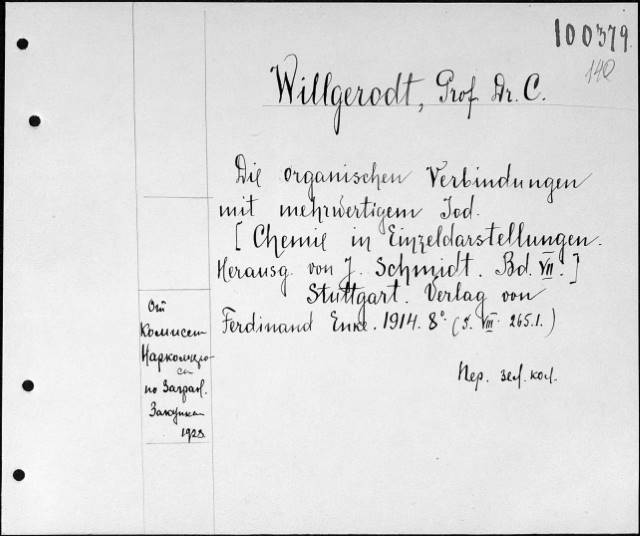 100379.
140
Willgerodt, Prof Dr. C.
Die organischen Verbindungen
mit mehrwertigem Jod.
[ Chemie in Einzeldarstellungen.
Herausg. von J. Schmidt. Bd. VII. ]
Stuttgart. Verlag von
Ferdinand Enke. 1914. 8°. (S. VIII. 265.1.)
Пер. зел. кол.
От
Комиссии
по Загран.
Закупке
1923